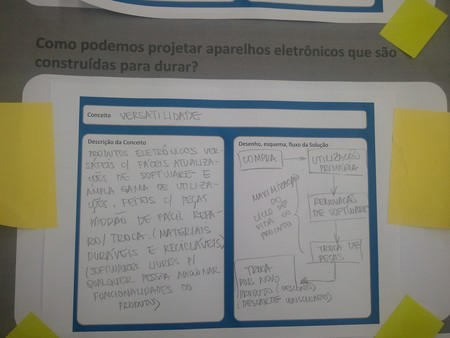 Como podemos projetar aparelhos eletrônicos que são
construídas para durar?
Conceito VERSATILIDADE
Descrição do Conceito
PRODUTOS ELETRÔNICOS VER-
SÁTEIS C/ FÁCEIS ATUALIZA-
ÇÕES DE SOFTWARE E
AMPLA GAMA DE UTILIZA-
ÇÕES. FEITOS C/ PEÇAS
PADRÃO DE FÁCIL REPA-
RO/TROCA. (MATERIAIS
DURÁVEIS E RECICLÁVEIS)
(SOFTWARES LIVRES P/
QUALQUER PESSOA ADICIONAR
FUNCIONALIDADES AO
PRODUTO)
Desenho, esquema, fluxo da Solução
COMPRA
UTILIZAÇÃO
PRIMÁRIA
MAXIMIZAÇÃO
DO
CICLO DE
VIDA DO
PRODUTO
RENOVAÇÃO
DE SOFTWARE
TROCA DE
PEÇAS
TROCA
POR NOVO
PRODUTO (DESCONTO)
(DESCARTE CONSCIENTE)